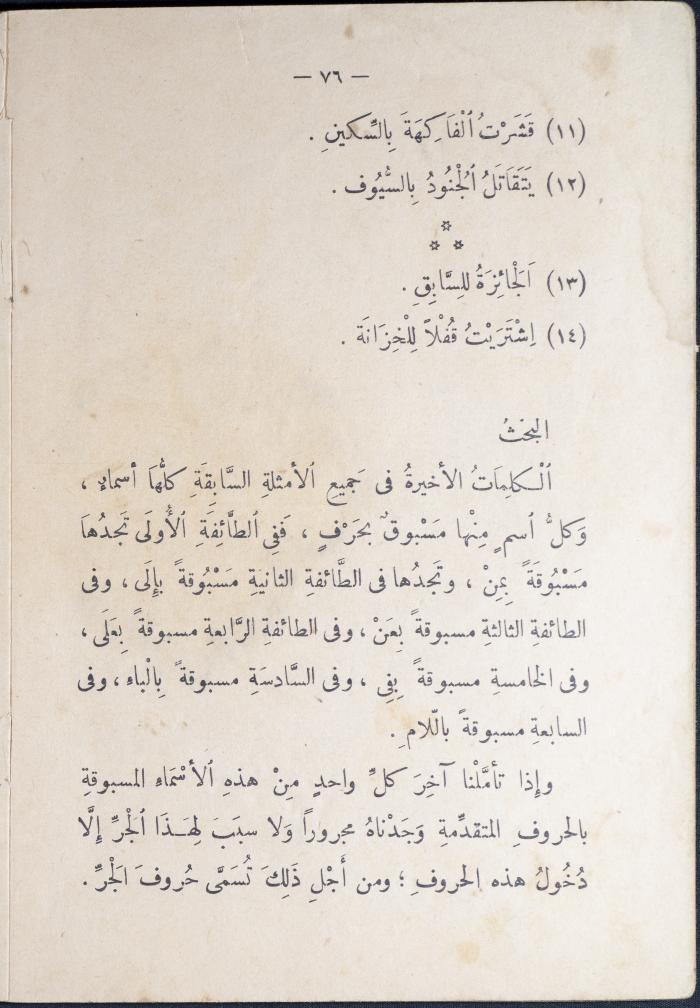 — ٧٦ —
(١١) قَشَرْتُ ٱلْفَاكِهَةَ بِالسِّكينِ .
(١٢) يَتَقَاتَلُ ٱلْجُنُودُ بِالسُّيُوف .
(١٣) اَلْجَائِزَةُ للِسَّابِقِ .
(١٤) اِشْتَرَيْتُ قُفْلاً لِلْخِزَانَة .
البحْثُ
ٱلْكلِمَاتُ الأخيرةُ فى جَميعِ ٱلأمثلةِ السَّابِقَةِ كلُّهَا أسماء ،
وَكلُّ ٱسمٍ مِنْها مَسْبوقٌ بحَرْفٍ ، فَفِى ٱلطَّائِفَةِ ٱلأُولَى تَجدُهَا
مَسْبُوقَةً بِمِنْ ، وتَجدُها فى الطَّائفةِ الثانيةِ مَسْبُوقةً بإِلَى ، وفى
الطائفةِ الثالثةِ مسبوقةً بِعَنْ ، وفى الطائفةِ الرَّابعةِ مسبوقةً بِعَلَى ،
وفى الخامسةِ مسبوقةً بِفِى ، وفى السَّادسَةِ مسبوقةً بِالْباءِ ، وفى
السابعةِ مسبوقةً باللّامِ .
وإِذا تأمَّلْنا آخِرَ كلِّ واحدٍ مِنْ هذهِ ٱلأسْمَاءِ المسبوقةِ
بالحروفِ المتقدِّمةِ وَجَدْناهُ مجروراً وَلا سببَ لِهَـذَا ٱلْجَرِّ إِلَّا
دُخُولُ هذه الحروفِ ؛ ومن أَجْلِ ذَلِكَ تُسَمَّى حُروفَ الْجَرِّ .